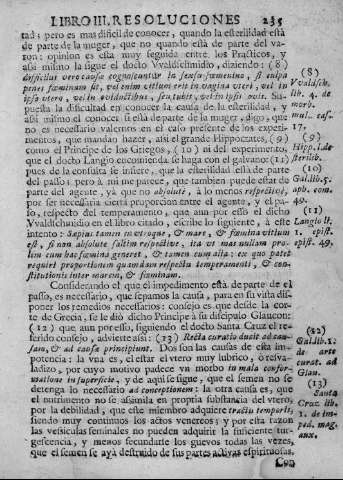 LIBRO III. RESOLUCIONES 235
tad; pero es mas dificil de conocer, quando la esterilidad està
de parte de la muger, que no quando està de parte del va-
ron: opinion es esta muy seguida entre los Practicos, y
assi mismo la sigue el docto Vvaldschmidio, diziendo: (8)
difficilius vero causæ cognoscuntur in sexu fœmenino, si culpa
penes fœminum sit, vel enim vitium erit in vagina vteri, vel in
ipso vtero, vel in ovi ductibus, seu tubis, vel in ipsis ovis. Sui-
puesta la dificultad en conocer la causa de la esterilidad, y
assi mismo el conocer si està de parte de la muger, digo, que
no es necessario valernos en el caso presente de los experi-
mentos, que mandan hazer, assi el grande Hippocrates, (9)
como el Principe de los Griegos, (10) ni del experimento,
que el docto Langio encomienda se haga con el galvano: (11) pues
de la consulta se infiere, que la esterilidad està de parte
del passo; pero à mi me parece, que tambien puede estar de
parte del agente, yà que no absolutè, à lo menos respectivè,
por ser necessaria cierta proporcion entre el agente, y el pa-
so, respecto del temperamento, que aun por esso el dicho
Vvaldschmidio en el libro citado, escribe lo siguiente, à este
intento: Sæpius tamen in utroque, & mare, & fœmina vitium
est, si non absolute saltim respective, ita vt mas nullam pro-
lem cum hac fœmina generet, & tamen cum alia: ex quo patet
requiri proportionem quamdam respectu temperamenti, & con-
stitutionis inter marem, & fœminam.
Considerando el que el impedimento està de parte de el
passo, es necessario, que sepamos la causa, para en su vista dispo-
ner los remedios necessarios: consejo es que desde la cor-
te de Grecia, se le diò dicho Principe à su discipulo Glaucon:
(12) que aun por esso, siguiendo el docto Santa Cruz el re-
ferido consejo, advierte assi: (13) Recta curatio ducit ad cau-
sam, & ad causæ principium. Dos son las causas de esta im-
potencia: la vna es, el estar el vtero muy lubrico, ò resva-
ladizo, por cuyo motivo padece vn morbo in mala confor-
matione in superficie, y de aqui se sigue, que el semen no se
detenga lo necessario ad conceptionem: la otra causa es, que
el nutrimento no se assimila en propria substancia del vtero,
por la debilidad, que este miembro adquiere tractu temporis,
siendo muy continuos los actos venereos; y por esta razon
las vessiculas seminales no pueden adquirir la suficiente tur-
gescencia, y menos secundarle los guevos todas las vezes,
que el semen se aya destruido de sus partes activas espirituosas.
Con
(8)
Vvaldsch.
lib. 4. de
morb.
mul. cas.
17.
(9)
Hipp. l. de
sterilib.
(10)
Gal. lib. 5.
aph. com.
49.
(11)
Langio lt.
1. epist.
epist. 49.
(12)
Gal. lib. 1.
de arte
curat. ad
Glau.
(13)
Santa
Cruz lib.
1. de im-
ped. mag.
aux.